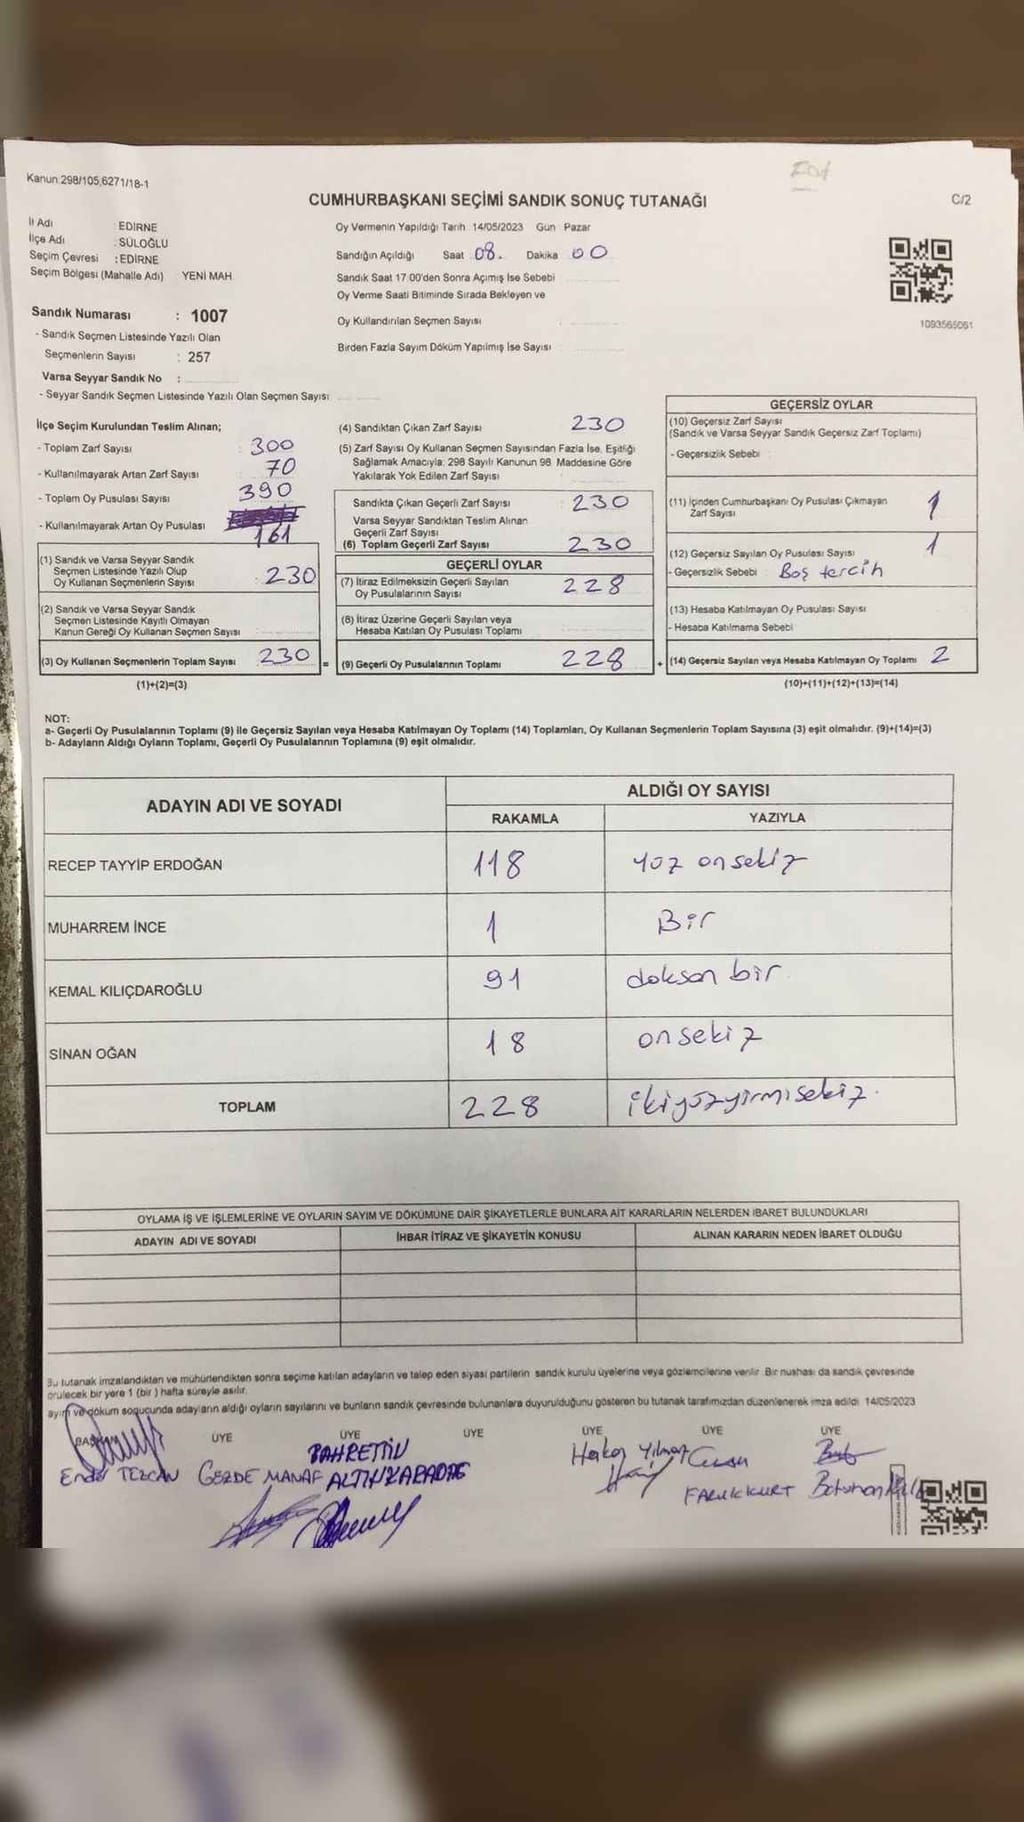 Kanun:298/105,6271/18-1
CUMHURBAŞKANI SEÇİMİ SANDIK SONUÇ TUTANAĞI
C/2
İl Adı : EDİRNE
İlçe Adı : SÜLOĞLU
Seçim Çevresi : EDİRNE
Seçim Bölgesi (Mahalle Adı) YENİ MAH.
Sandık Numarası : 1007
- Sandık Seçmen Listesinde Yazılı Olan
Seçmenlerin Sayısı : 257
Varsa Seyyar Sandık No :
- Seyyar Sandık Seçmen Listesinde Yazılı Olan Seçmen Sayısı:
Oy Vermenin Yapıldığı Tarih 14/05/2023 Gün Pazar
Sandığın Açıldığı Saat 08. Dakika 00
Sandık Saat 17.00'den Sonra Açımış İse Sebebi
Oy Verme Saati Bitiminde Sırada Bekleyen ve
Oy Kullandırılan Seçmen Sayısı :
Birden Fazla Sayım Döküm Yapılmış İse Sayısı
1093565061
İlçe Seçim Kurulundan Teslim Alınan;
- Toplam Zarf Sayısı : 300
- Kullanılmayarak Artan Zarf Sayısı : 70
- Toplam Oy Pusulası Sayısı : 390
- Kullanılmayarak Artan Oy Pusulası : 161
(1) Sandık ve Varsa Seyyar Sandık
Seçmen Listesinde Yazılı Olup
Oy Kullanan Seçmenlerin Sayısı : 230
(2) Sandık ve Varsa Seyyar Sandık
Seçmen Listesinde Kayıtlı Olmayan
Kanun Gereği Oy Kullanan Seçmen Sayısı :
(3) Oy Kullanan Seçmenlerin Toplam Sayısı : 230 =
(1)+(2)=(3)
(4) Sandıktan Çıkan Zarf Sayısı 230
(5) Zarf Sayısı Oy Kullanan Seçmen Sayısından Fazla İse, Eşitliği
Sağlamak Amacıyla; 298 Sayılı Kanunun 98. Maddesine Göre
Yakılarak Yok Edilen Zarf Sayısı
Sandıkta Çıkan Geçerli Zarf Sayısı : 230
Varsa Seyyar Sandıktan Teslim Alınan
Geçerli Zarf Sayısı
(6) Toplam Geçerli Zarf Sayısı : 230
GEÇERLİ OYLAR
(7) İtiraz Edilmeksizin Geçerli Sayılan
Oy Pusulalarının Sayısı : 228
(8) İtiraz Üzerine Geçerli Sayılan veya
Hesaba Katılan Oy Pusulası Toplamı
(9) Geçerli Oy Pusulalarının Toplamı : 228 +
GEÇERSİZ OYLAR
(10) Geçersiz Zarf Sayısı :
(Sandık ve Varsa Seyyar Sandık Geçersiz Zarf Toplamı)
- Geçersizlik Sebebi
(11) İçinden Cumhurbaşkanı Oy Pusulası Çıkmayan
Zarf Sayısı : 1
(12) Geçersiz Sayılan Oy Pusulası Sayısı : 1
- Geçersizlik Sebebi : Boş tercih
(13) Hesaba Katılmayan Oy Pusulası Sayısı
- Hesaba Katılmama Sebebi
(14) Geçersiz Sayılan veya Hesaba Katılmayan Oy Toplamı 2
(10)+(11)+(12)+(13)=(14)
NOT:
a- Geçerli Oy Pusulalarının Toplamı (9) ile Geçersiz Sayılan veya Hesaba Katılmayan Oy Toplamı (14) Toplamları, Oy Kullanan Seçmenlerin Toplam Sayısına (3) eşit olmalıdır. (9)+(14)=(3)
b- Adayların Aldığı Oyların Toplamı, Geçerli Oy Pusulalarının Toplamına (9) eşit olmalıdır.
ADAYIN ADI VE SOYADI ALDIĞI OY SAYISI
RAKAMLA YAZIYLA
RECEP TAYYİP ERDOĞAN 118 yüz onsekiz
MUHARREM İNCE 1 Bir
KEMAL KILIÇDAROĞLU 91 doksan bir
SİNAN OĞAN 18 onsekiz
TOPLAM 228 ikiyüzyirmisekiz.
OYLAMA İŞ VE İŞLEMLERİNE VE OYLARIN SAYIM VE DÖKÜMÜNE DAİR ŞİKAYETLERLE BUNLARA AİT KARARLARIN NELERDEN İBARET BULUNDUKLARI
ADAYIN ADI VE SOYADI İHBAR İTİRAZ VE ŞİKAYETİN KONUSU ALINAN KARARIN NEDEN İBARET OLDUĞU
Bu tutanak imzalandıktan ve mühürlendikten sonra seçime katılan adayların ve talep eden siyasi partilerin sandık kurulu üyelerine veya gözlemcilerine verilir. Bir nushası da sandık çevresinde
görülecek bir yere 1 (bir ) hafta süreyle asılır.
ayım ve döküm sonucunda adayların aldığı oyların sayılarını ve bunların sandık çevresinde bulunanlara duyurulduğunu gösteren bu tutanak tarafımızdan düzenlenerek imza edildi. 14/05/2023
BAŞKAN ÜYE ÜYE ÜYE ÜYE ÜYE ÜYE
Ender TEZCAN GÖZDE MANAF BAHRETTİN ALTINKARADAĞ Hakan Yılmaz FARUK KURT Batuhan